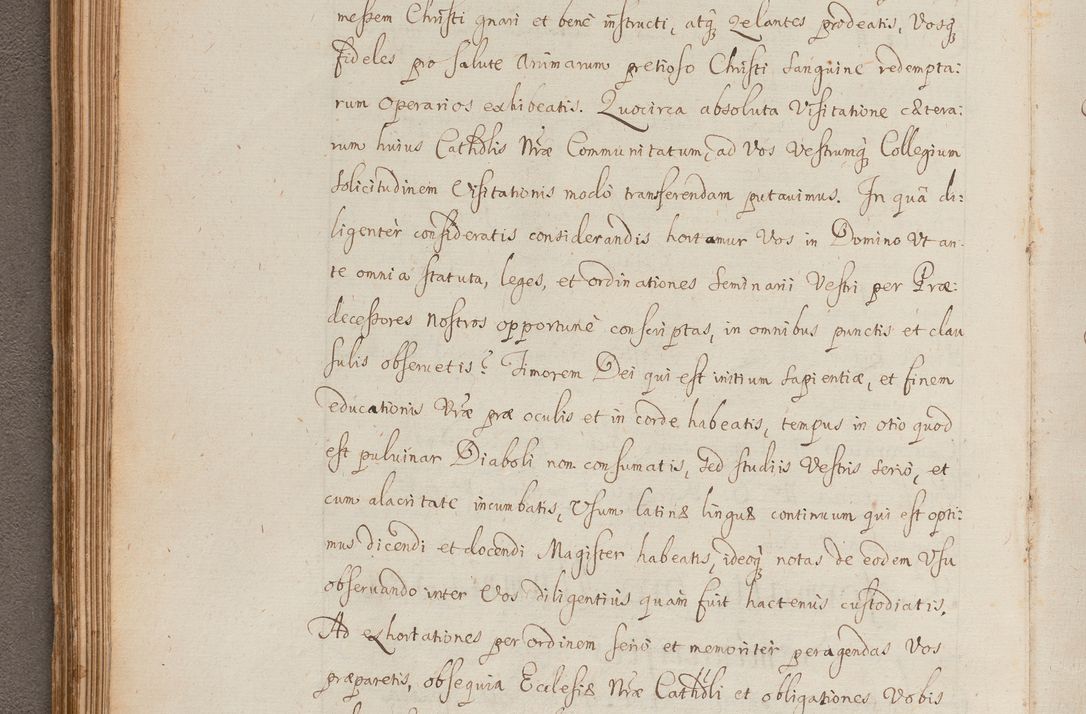 messem Christi gnari et benè instructi, atq̃ zelantes prodeatis, Vosq̃
fideles pro salute animarum pretioso Christi sanguine redempta:
rum operarios exhibeatis. Quocirca absoluta Visitatione cætera:
rum huius Cathólis Nræ Communitatum, ad Vos Vestrumq̃ Collegium
solicitudinem Visitationis modò transferendam putavimus. In quâ di:
ligentèr consideratis considerandis hortamur Vos in Domino Vt an-
te omnia statuta, leges, et ordinationes Seminarii Vestri per Præ:
decessores Nostros opportunè conscriptas, in omnibus punctis et clau
sulis observetis? Timorem Dei qui est initium sapientiæ, et finem
educationis Vræ præ oculis et in corde habeatis, tempus in otio quod
est pulvinar Diaboli non consumatis, sed studiis Vestris seriò, et
cum alacritate incumbatis, Vsum latinæ linguæ continuum qui est opti:
mus dicendi et docendi Magister habeatis, ideoq̃ notas de eodem Vsu
observando inter Vos diligentiùs quàm fuit hactenùs custodiatis.
Ad exhortationes per ordinem seriò et memoritèr peragendas Vos
præparetis, obsequia Ecclesiæ Nræ Cathóli et obligationes Vobis